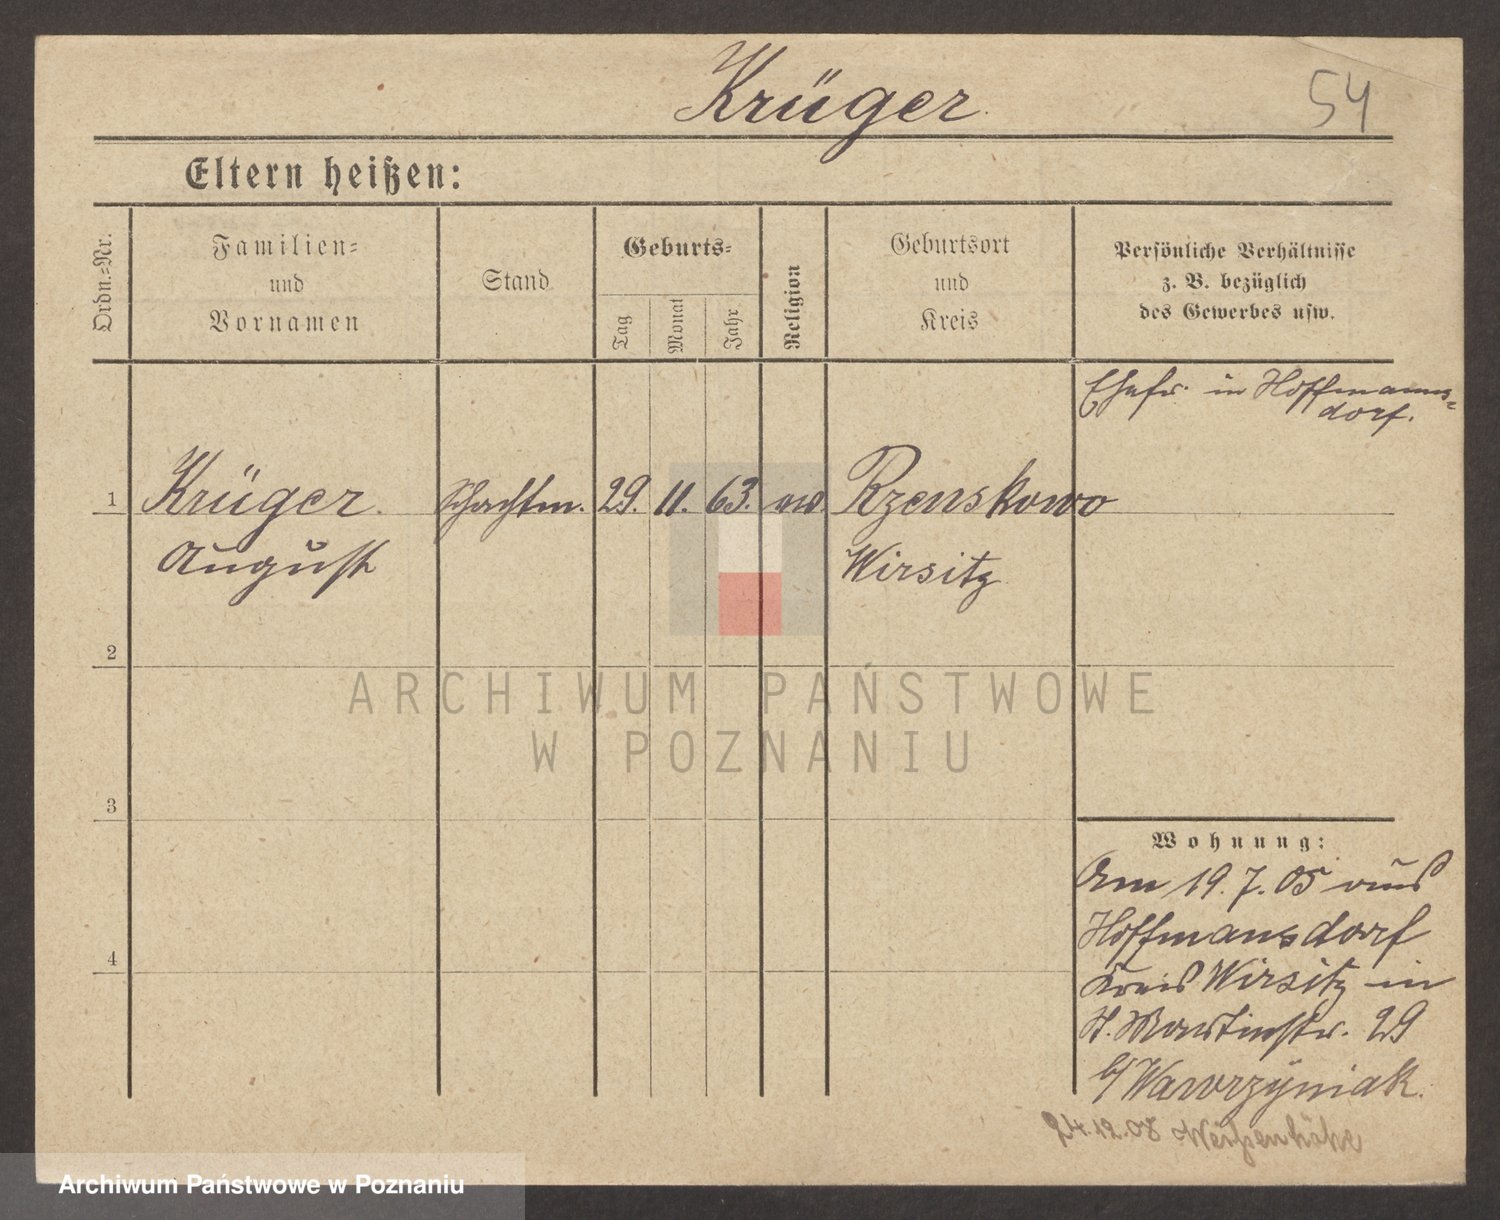 Krüger
54
Eltern heißen:
Ordn.-Nr.
Familien-
und
Vornamen
Stand
Geburts-
Tag
Monat
Jahr
Religion
Geburtsort
und
Kreis
Persönliche Verhältnisse
z. B. bezüglich
des Gewerbes usw.
Ehefr. in Hoffmanns-
dorf.
1
Krüger
August
Schachtm.
29. 11. 63.
Rzenskowo
Wirsitz
2
3
4
Wohnung:
Am 19.7.05 aus
Hoffmansdorf
Kreis Wirsitz in
St. Martinstr. 29
b/ Wawrzyniak.
24.12.08 Weißenhöhe
ARCHIWUM PAŃSTWOWE
W POZNANIU
Archiwum Państwowe w Poznaniu